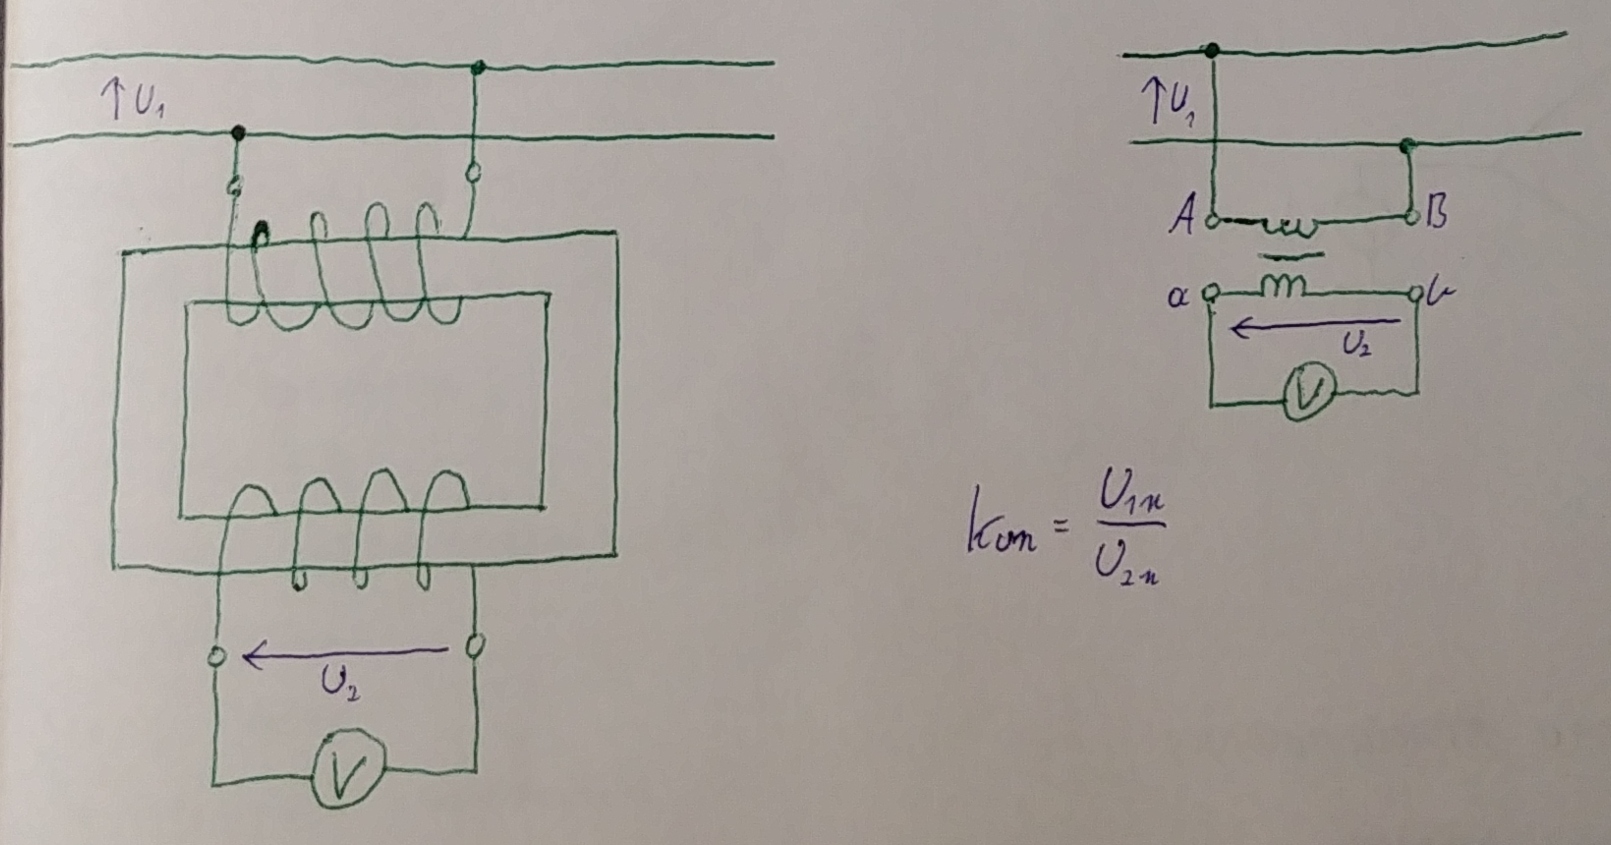 ↑U₁
U₂
V
↑U₁
A B
a b
U₂
V
kun = U1n / U2n